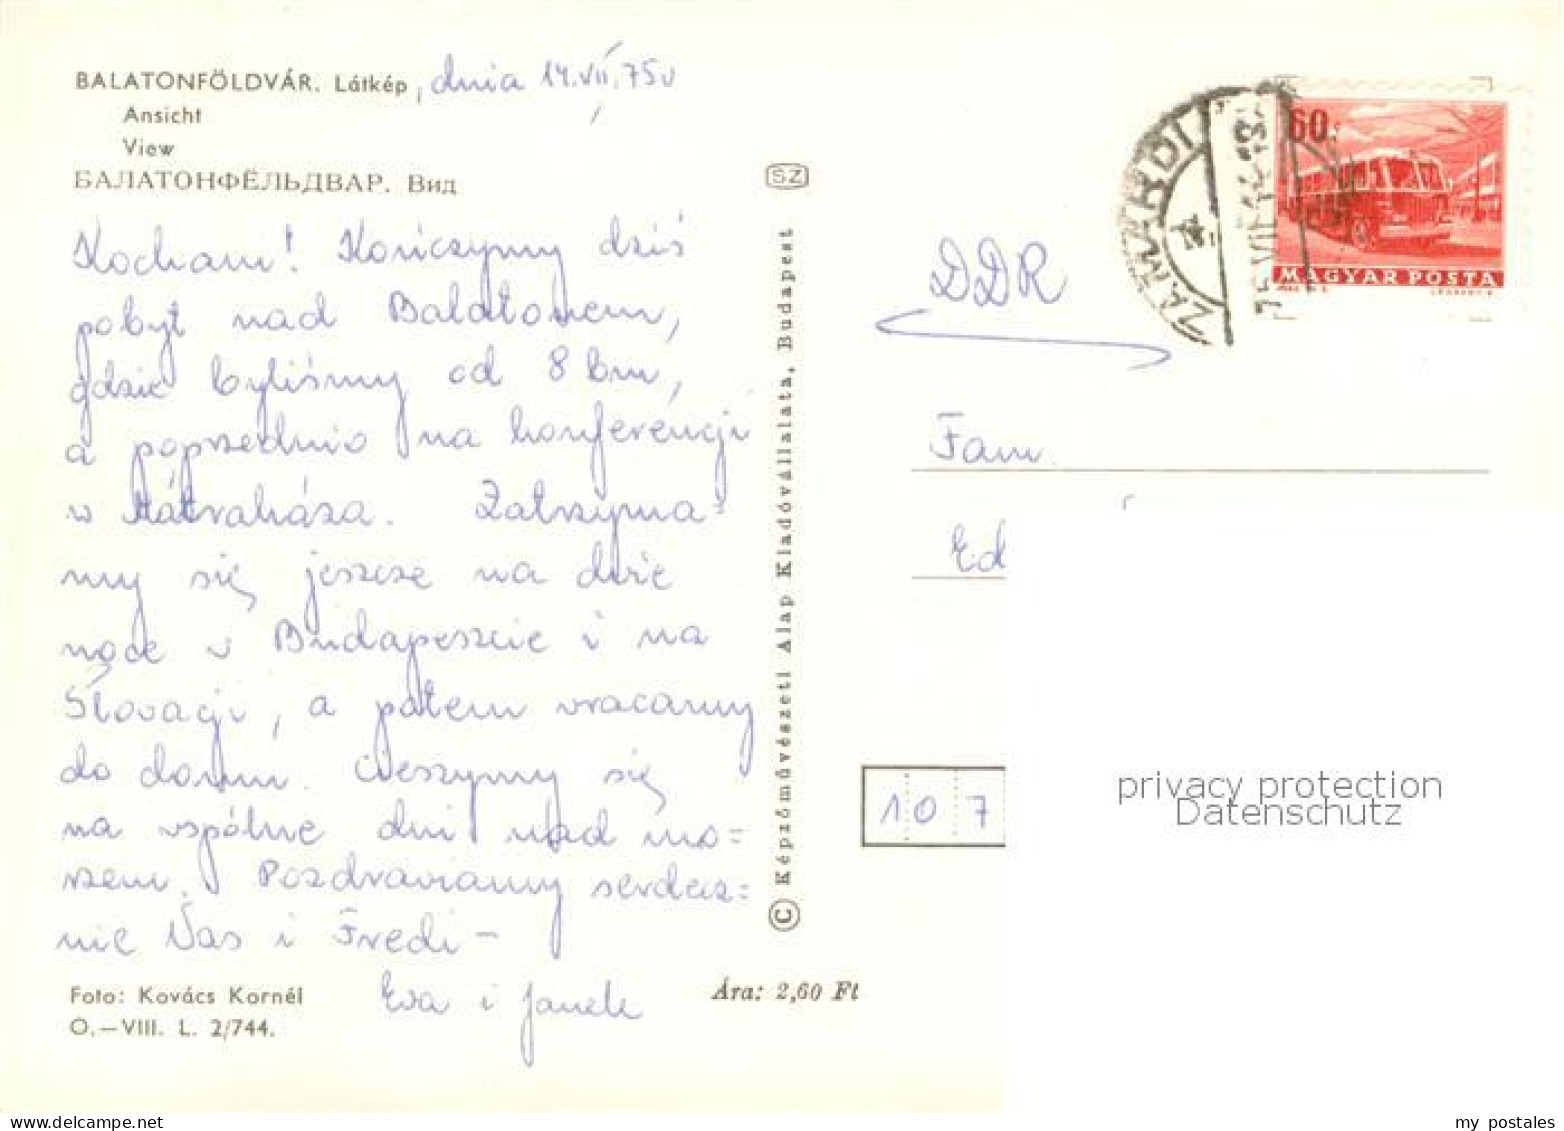 BALATONFÖLDVÁR. Látkép, dnia 14.VII.75r
Ansicht
View
БАЛАТОНФЁЛЬДВАР. Вид
Kochani! Kończymy dziś
pobyt nad Balatonem,
gdzie byliśmy od 8 bm,
a poprzednio na konferencji
w Mátraháza. Zatrzyma=
my się jeszcze na dwie
noce w Budapeszcie i na
Słowacji, a potem wracamy
do domu. Cieszymy się
na wspólne dni nad mo=
rzem. Pozdrawiamy serdecz=
nie Was i Fredi –
Ewa i Janek
Foto: Kovács Kornél
O.–VIII. L. 2/744.
Ára: 2,60 Ft
© Képzőművészeti Alap Kiadóvállalata, Budapest
SZ
ZAMÁRDI
60
MAGYAR POSTA
DDR
Fam.
Ed
107
privacy protection
Datenschutz
my postales